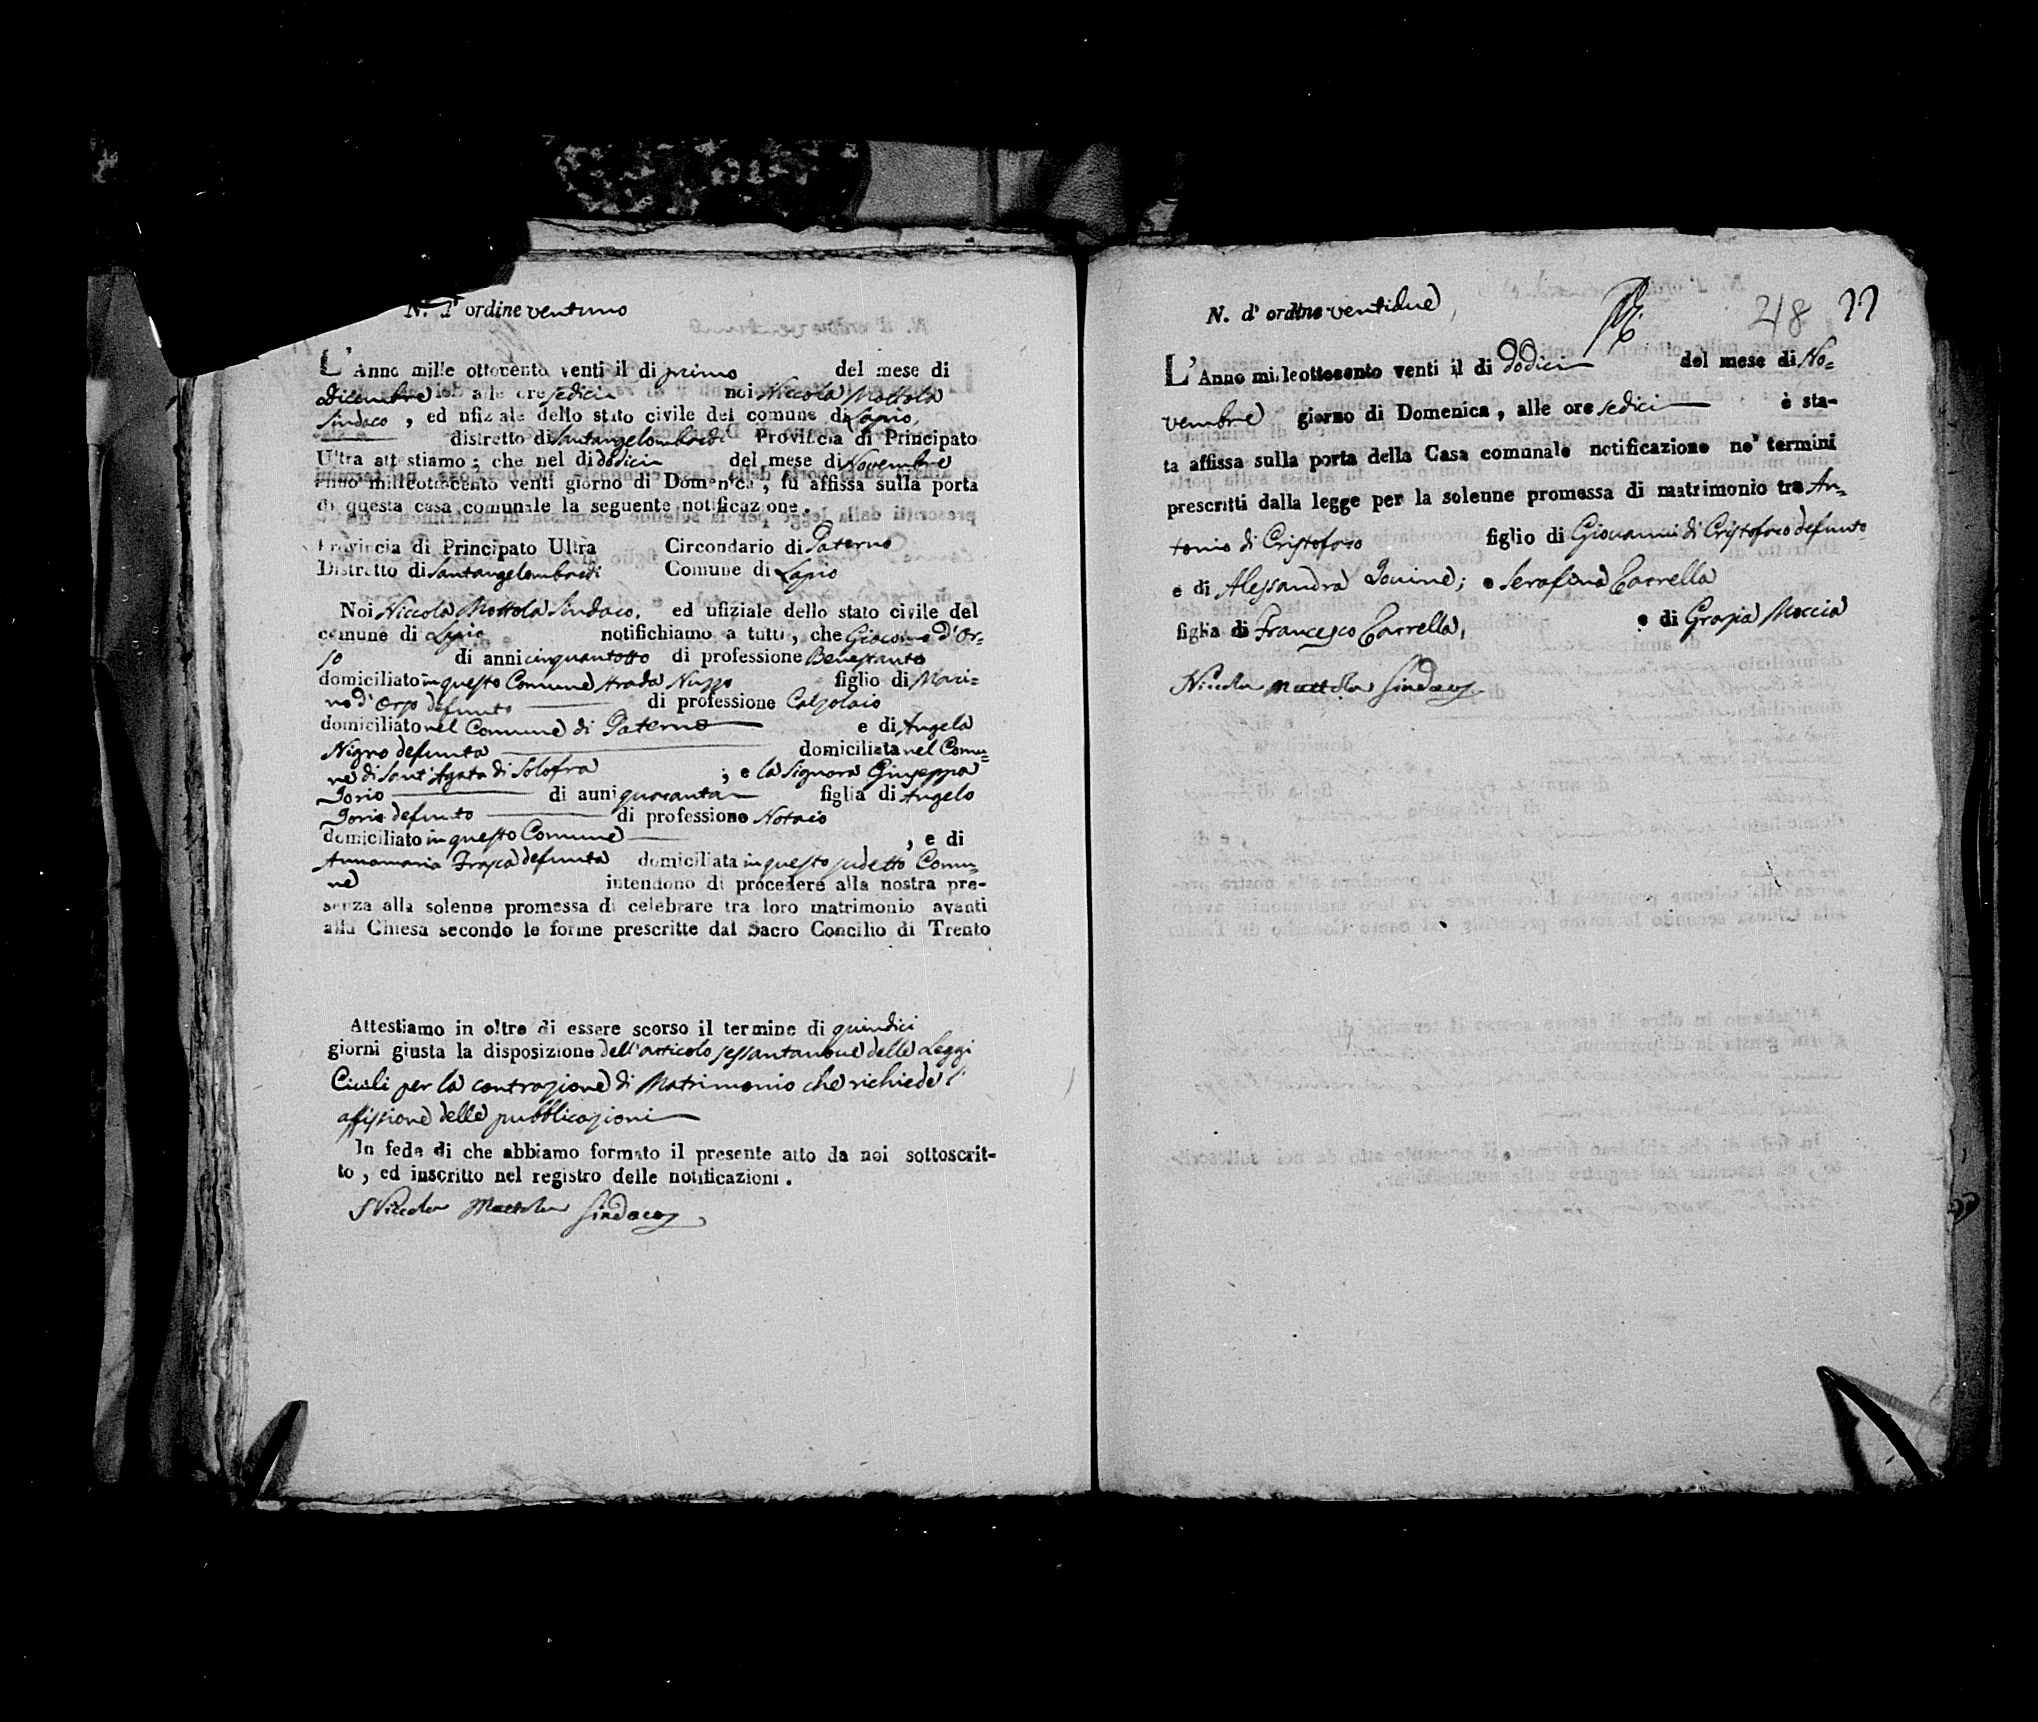 N. d' ordine ventuno
L' Anno mille ottocento venti il di primo del mese di
Dicembre ed alle ore sedici noi Niccola Mottola
Sindaco , ed ufiziale dello stato civile del comune di Lapio,
distretto di Santangelombardi Provincia di Principato
Ultra attestiamo ; che nel di dodici del mese di Novembre
anno milleottocento venti giorno di Domenica , fu affissa sulla porta
di questa casa comunale la seguente notificazione .
Provincia di Principato Ultra Circondario di Paterno
Distretto di Santangelombardi Comune di Lapio
Noi Niccola Mottola Sindaco, ed ufiziale dello stato civile del
comune di Lapio notifichiamo a tutti , che Giacomo d'Or-
so di anni cinquantotto di professione Benestante
domiciliato in questo Comune strada Nuzzo figlio di Mari-
no d'Orso defunto di professione Calzolaio
domiciliato nel Comune di Paterno e di Angela
Nigro defunta domiciliata nel Comu=
ne di Sant'Agata di Solofra ; e la Signora Giuseppa
Iorio di anni quaranta figlia di Angelo
Iorio defunto di professione Notaio
domiciliato in questo Comune , e di
Annamaria Trosca defunta domiciliata in questo sudetto Comu=
ne intendono di procedere alla nostra pre-
senza alla solenne promessa di celebrare tra loro matrimonio avanti
alla Chiesa secondo le forme prescritte dal Sacro Concilio di Trento
Attestiamo in oltre di essere scorso il termine di quindici
giorni giusta la disposizione dell'articolo sessantanove delle Leggi
Civili per la contrazione di Matrimonio che richiede l'
affissione delle pubblicazioni
In fede di che abbiamo formato il presente atto da noi sottoscrit-
to , ed inscritto nel registro delle notificazioni .
Niccola Mottola Sindaco
N. d' ordine ventidue
218 22
L' Anno milleottocento venti il di dodici del mese di No-
vembre giorno di Domenica , alle ore sedici è sta-
ta affissa sulla porta della Casa comunale notificazione ne' termini
prescritti dalla legge per la solenne promessa di matrimonio tra An-
tonio di Cristofaro figlio di Giovanni di Cristofaro defunto
e di Alessandra Iovine ; e Serafina Carrella
figlia di Francesco Carrella, e di Grazia Moccia
Niccola Mottola Sindaco